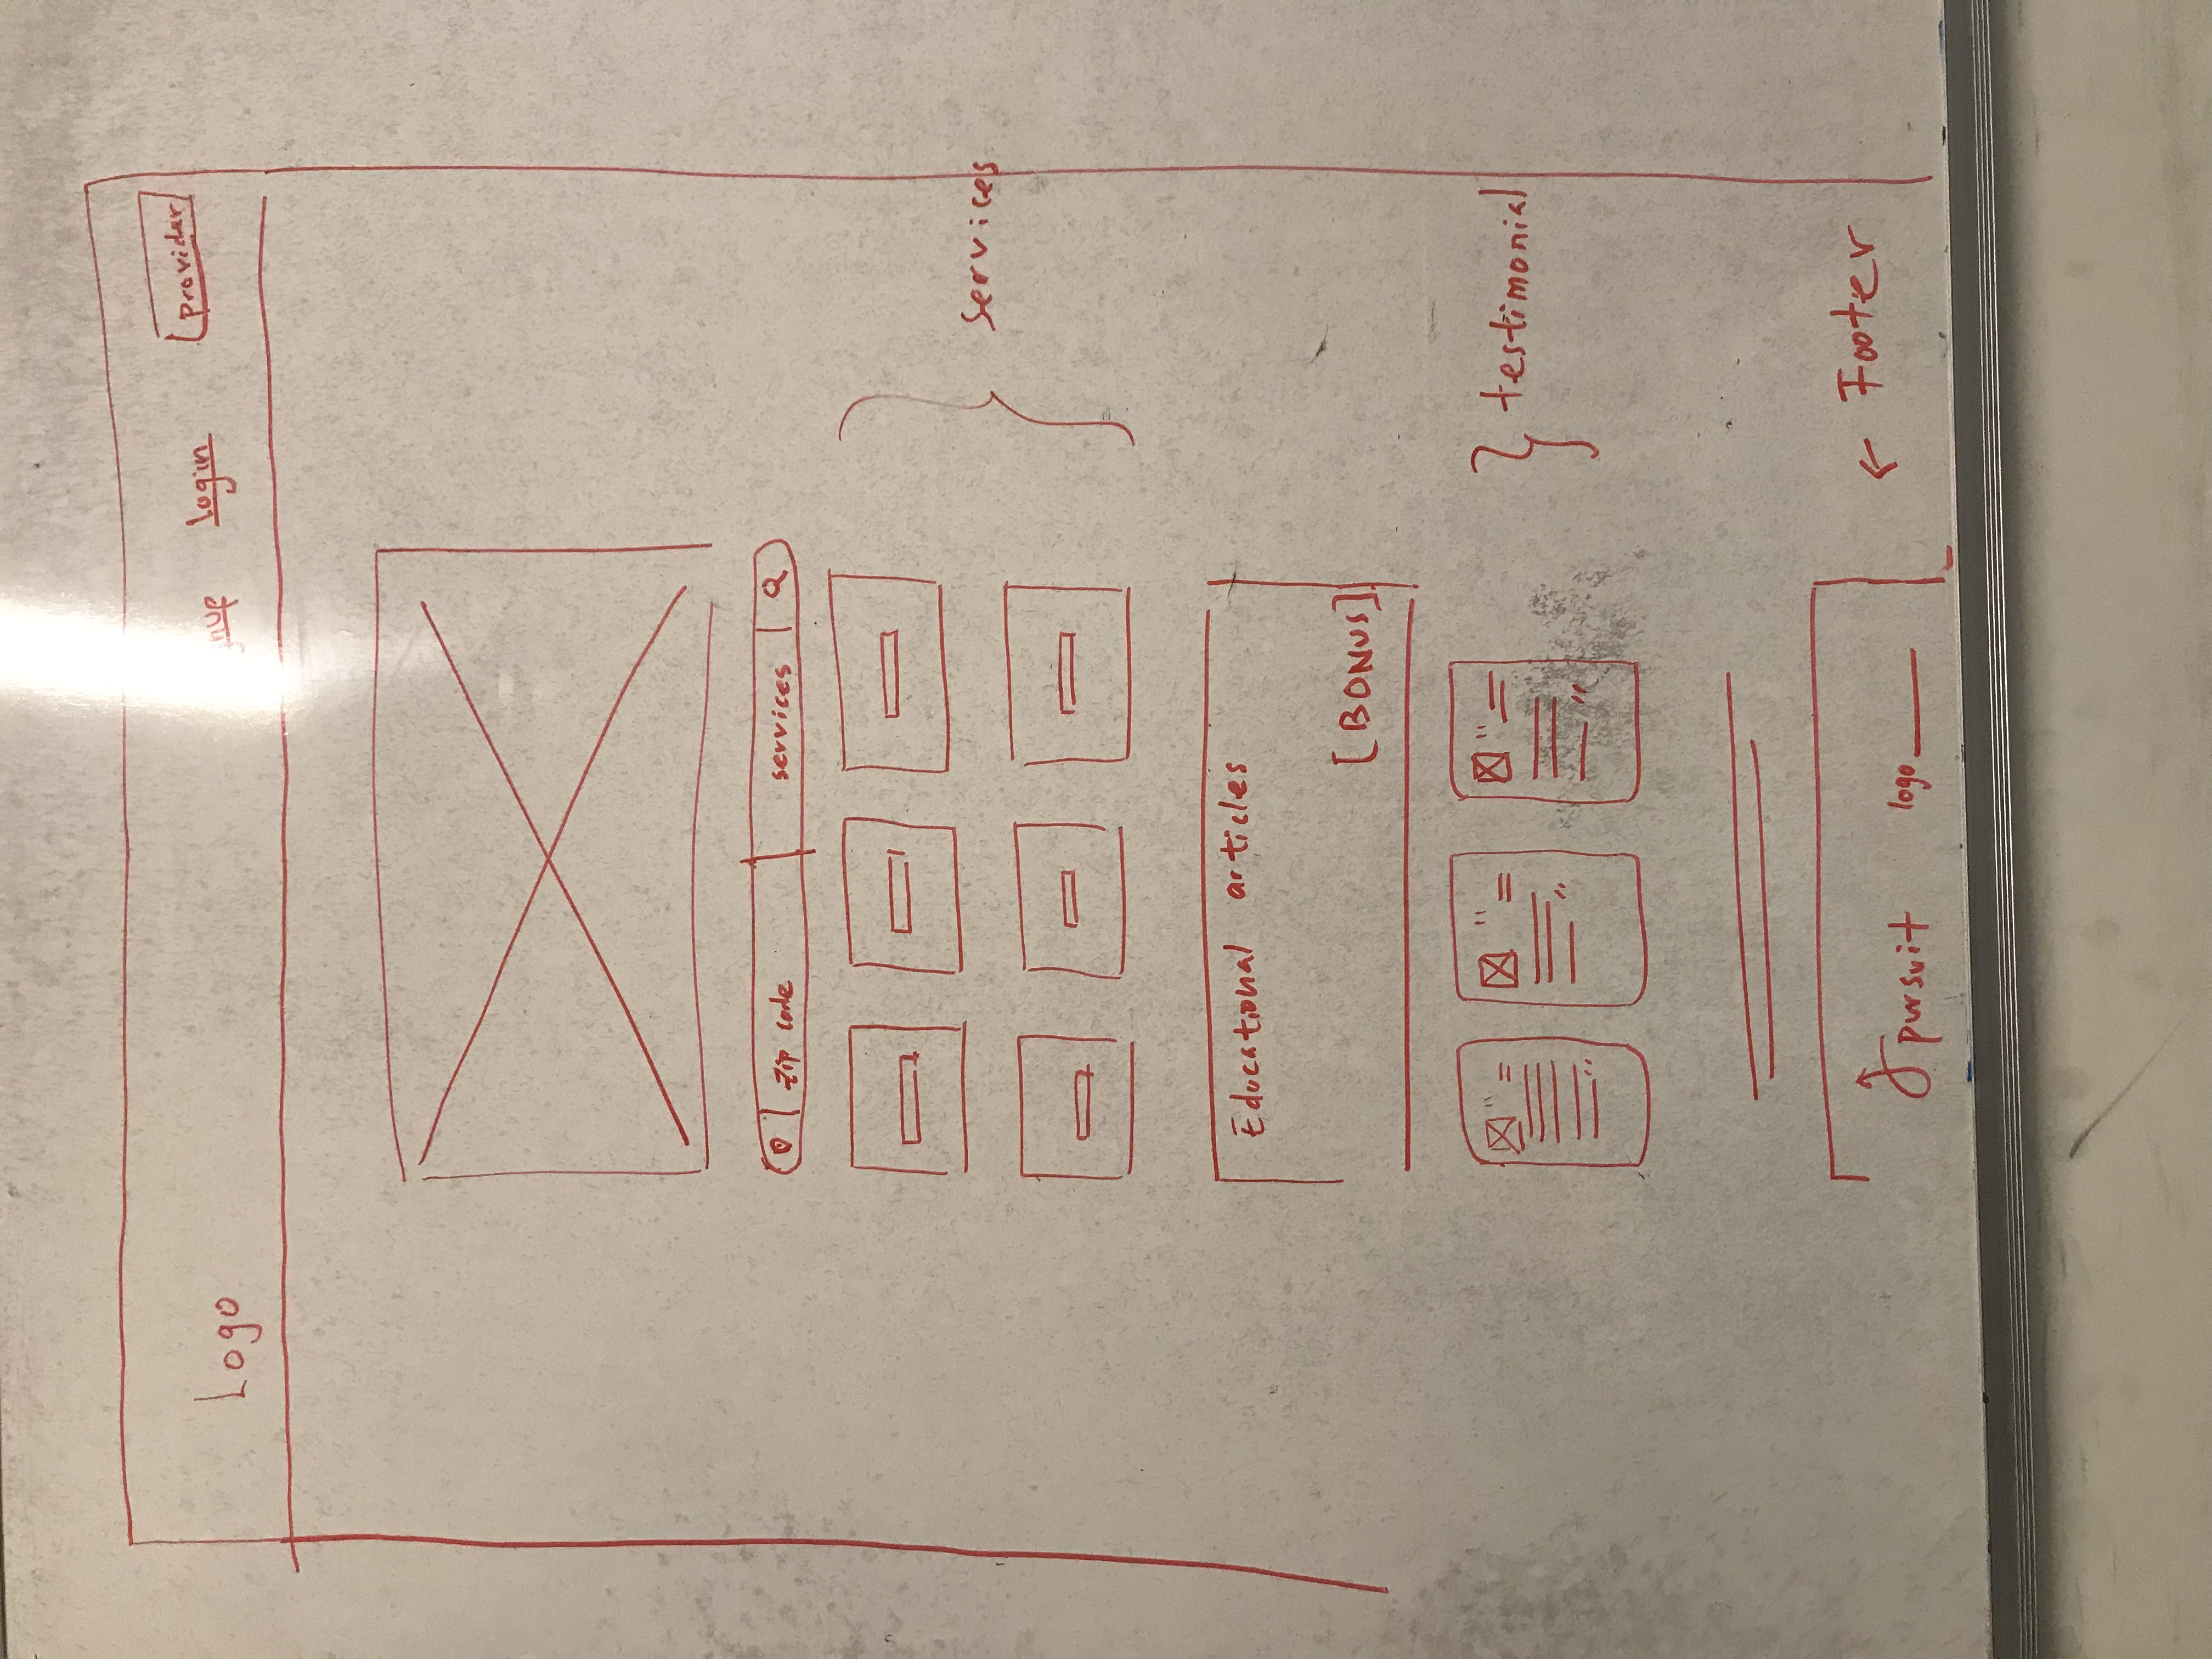 Logo
login
provider
Zip code
services
services
Educational articles
[BONUS]
testimonial
Footer
pursuit
logo